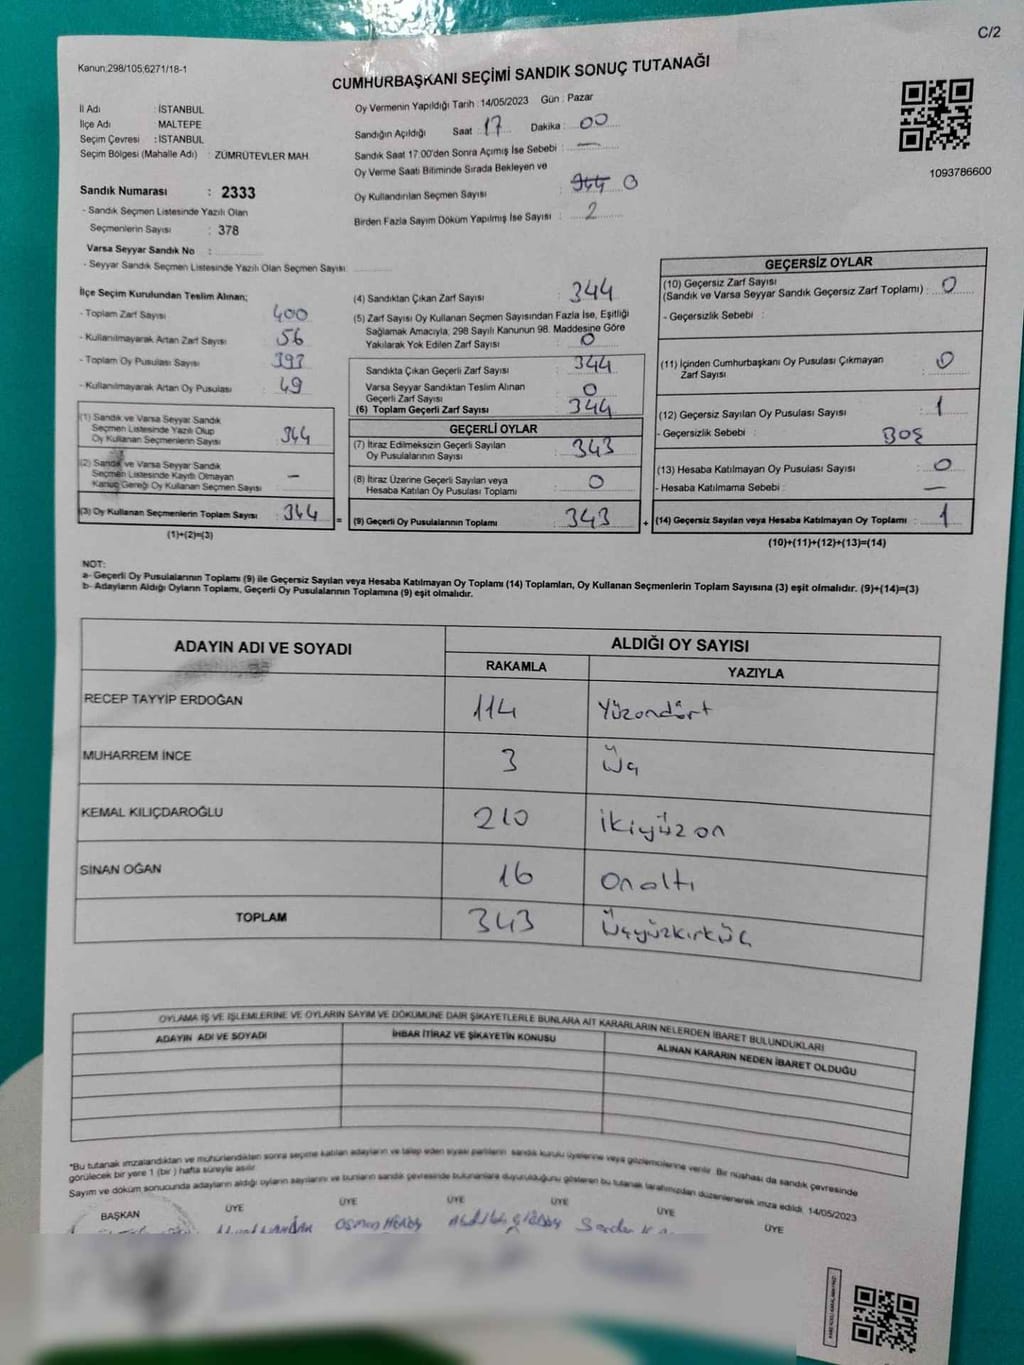 C/2
Kanun;298/105;6271/18-1
CUMHURBAŞKANI SEÇİMİ SANDIK SONUÇ TUTANAĞI
İl Adı : İSTANBUL
İlçe Adı : MALTEPE
Seçim Çevresi : İSTANBUL
Seçim Bölgesi (Mahalle Adı) : ZÜMRÜTEVLER MAH
Sandık Numarası : 2333
- Sandık Seçmen Listesinde Yazılı Olan
Seçmenlerin Sayısı : 378
Varsa Seyyar Sandık No :
- Seyyar Sandık Seçmen Listesinde Yazılı Olan Seçmen Sayısı:
Oy Vermenin Yapıldığı Tarih : 14/05/2023 Gün : Pazar
Sandığın Açıldığı Saat : 17 Dakika : 00
Sandık Saat 17.00'den Sonra Açımış İse Sebebi : —
Oy Verme Saati Bitiminde Sırada Bekleyen ve
Oy Kullandırılan Seçmen Sayısı : 344 0
Birden Fazla Sayım Döküm Yapılmış İse Sayısı : 2
1093786600
İlçe Seçim Kurulundan Teslim Alınan;
- Toplam Zarf Sayısı 400
- Kullanılmayarak Artan Zarf Sayısı 56
- Toplam Oy Pusulası Sayısı 393
- Kullanılmayarak Artan Oy Pusulası 49
(1) Sandık ve Varsa Seyyar Sandık
Seçmen Listesinde Yazılı Olup
Oy Kullanan Seçmenlerin Sayısı 344
(2) Sandık ve Varsa Seyyar Sandık
Seçmen Listesinde Kayıtlı Olmayan
Kanun Gereği Oy Kullanan Seçmen Sayısı —
(3) Oy Kullanan Seçmenlerin Toplam Sayısı 344
(1)+(2)=(3)
(4) Sandıktan Çıkan Zarf Sayısı 344
(5) Zarf Sayısı Oy Kullanan Seçmen Sayısından Fazla İse, Eşitliği
Sağlamak Amacıyla, 298 Sayılı Kanunun 98. Maddesine Göre
Yakılarak Yok Edilen Zarf Sayısı 0
Sandıkta Çıkan Geçerli Zarf Sayısı 344
Varsa Seyyar Sandıktan Teslim Alınan
Geçerli Zarf Sayısı 0
(6) Toplam Geçerli Zarf Sayısı 344
GEÇERLİ OYLAR
(7) İtiraz Edilmeksizin Geçerli Sayılan
Oy Pusulalarının Sayısı 343
(8) İtiraz Üzerine Geçerli Sayılan veya
Hesaba Katılan Oy Pusulası Toplamı 0
= (9) Geçerli Oy Pusulalarının Toplamı 343 +
GEÇERSİZ OYLAR
(10) Geçersiz Zarf Sayısı
(Sandık ve Varsa Seyyar Sandık Geçersiz Zarf Toplamı) : 0
- Geçersizlik Sebebi :
(11) İçinden Cumhurbaşkanı Oy Pusulası Çıkmayan
Zarf Sayısı 0
(12) Geçersiz Sayılan Oy Pusulası Sayısı : 1
- Geçersizlik Sebebi : BOŞ
(13) Hesaba Katılmayan Oy Pusulası Sayısı : 0
- Hesaba Katılmama Sebebi : —
(14) Geçersiz Sayılan veya Hesaba Katılmayan Oy Toplamı : 1
(10)+(11)+(12)+(13)=(14)
NOT:
a- Geçerli Oy Pusulalarının Toplamı (9) ile Geçersiz Sayılan veya Hesaba Katılmayan Oy Toplamı (14) Toplamları, Oy Kullanan Seçmenlerin Toplam Sayısına (3) eşit olmalıdır. (9)+(14)=(3)
b- Adayların Aldığı Oyların Toplamı, Geçerli Oy Pusulalarının Toplamına (9) eşit olmalıdır.
ADAYIN ADI VE SOYADI ALDIĞI OY SAYISI
RAKAMLA YAZIYLA
RECEP TAYYİP ERDOĞAN 114 Yüzondört
MUHARREM İNCE 3 Üç
KEMAL KILIÇDAROĞLU 210 İkiyüzon
SİNAN OĞAN 16 Onaltı
TOPLAM 343 Üçyüzkırküç
OYLAMA İŞ VE İŞLEMLERİNE VE OYLARIN SAYIM VE DÖKÜMÜNE DAİR ŞİKAYETLERLE BUNLARA AİT KARARLARIN NELERDEN İBARET BULUNDUKLARI
ADAYIN ADI VE SOYADI İHBAR İTİRAZ VE ŞİKAYETİN KONUSU ALINAN KARARIN NEDEN İBARET OLDUĞU
*Bu tutanak imzalandıktan ve mühürlendikten sonra seçime katılan adayların ve talep eden siyasi partilerin sandık kurulu üyelerine veya gözlemcilerine verilir. Bir nüshası da sandık çevresinde
görülecek bir yere 1 (bir ) hafta süreyle asılır.
Sayım ve döküm sonucunda adayların aldığı oyların sayılarını ve bunların sandık çevresinde bulunanlara duyurulduğunu gösteren bu tutanak tarafımızdan düzenlenerek imza edildi. 14/05/2023
BAŞKAN ÜYE ÜYE ÜYE ÜYE ÜYE ÜYE